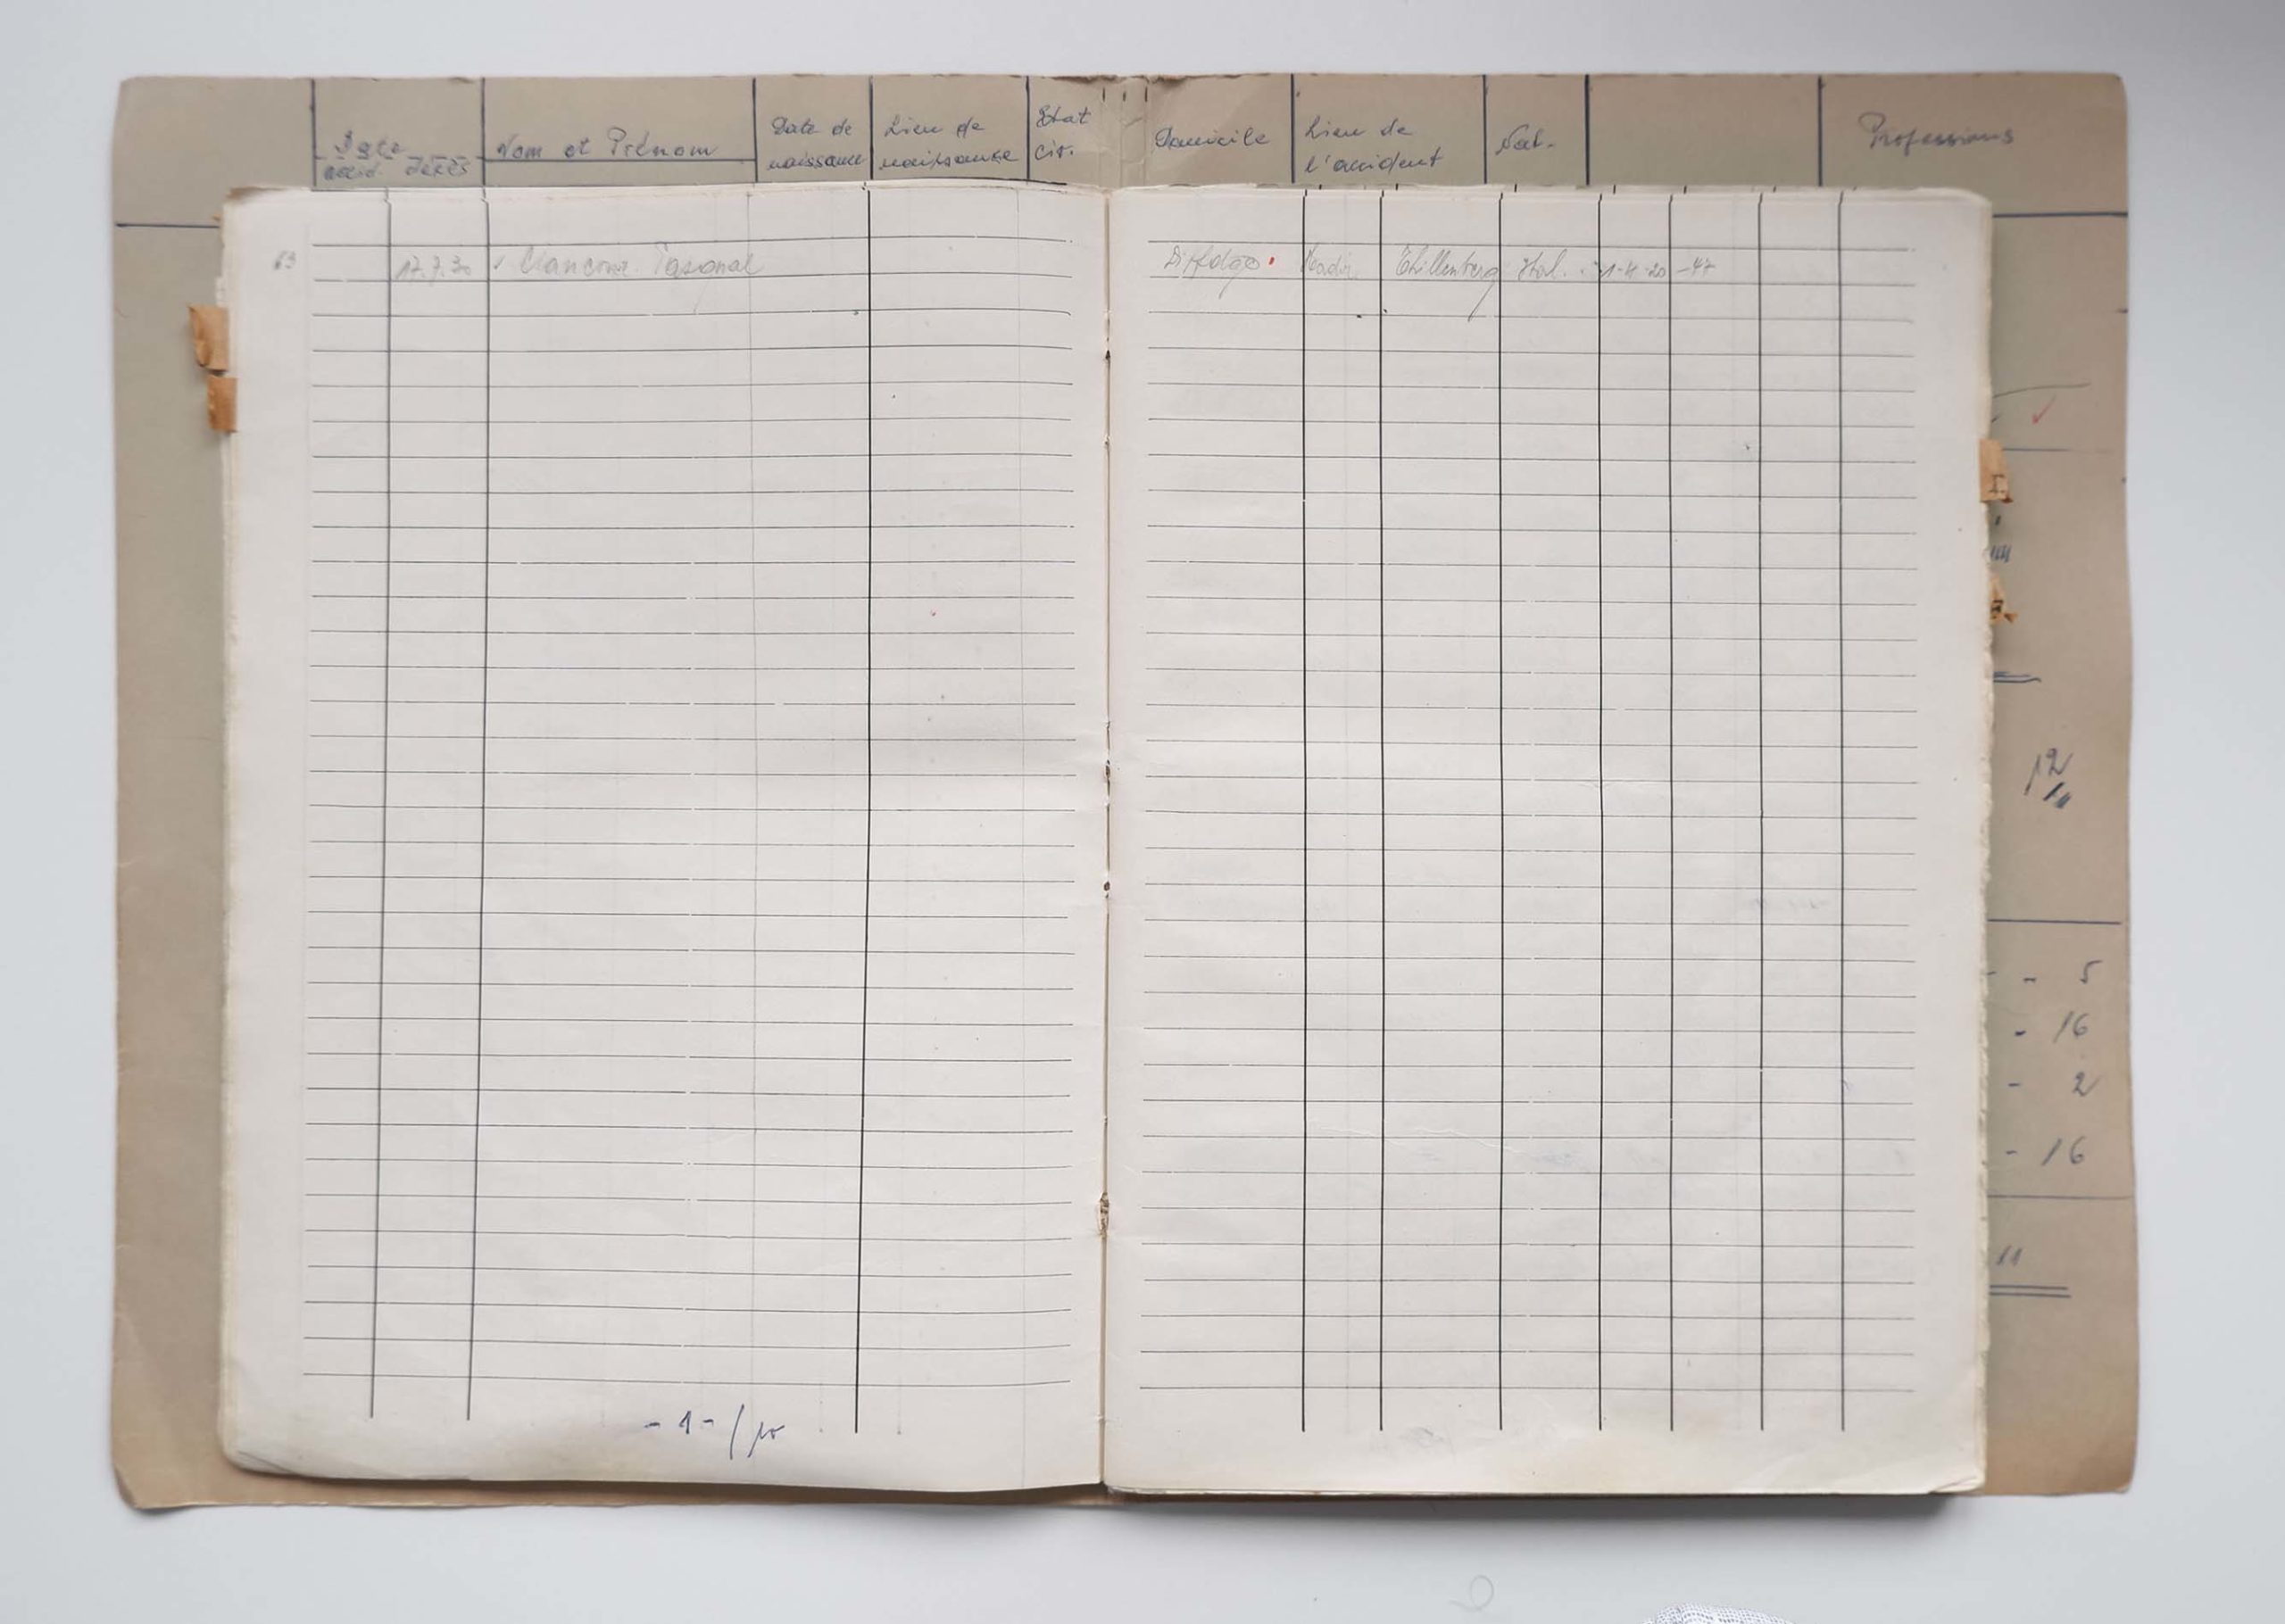 Date
accid. décès
Nom et Prénom
Date de naissance
Lieu de naissance
Etat civ.
Domicile
Lieu de l'accident
Nat.
Professions
63 17.7.30 Ciancone Pasqual
Differdge Thillenberg Ital. 1-4-20 -47
12
- 5
- 16
- 2
- 16
11
- 1 - /